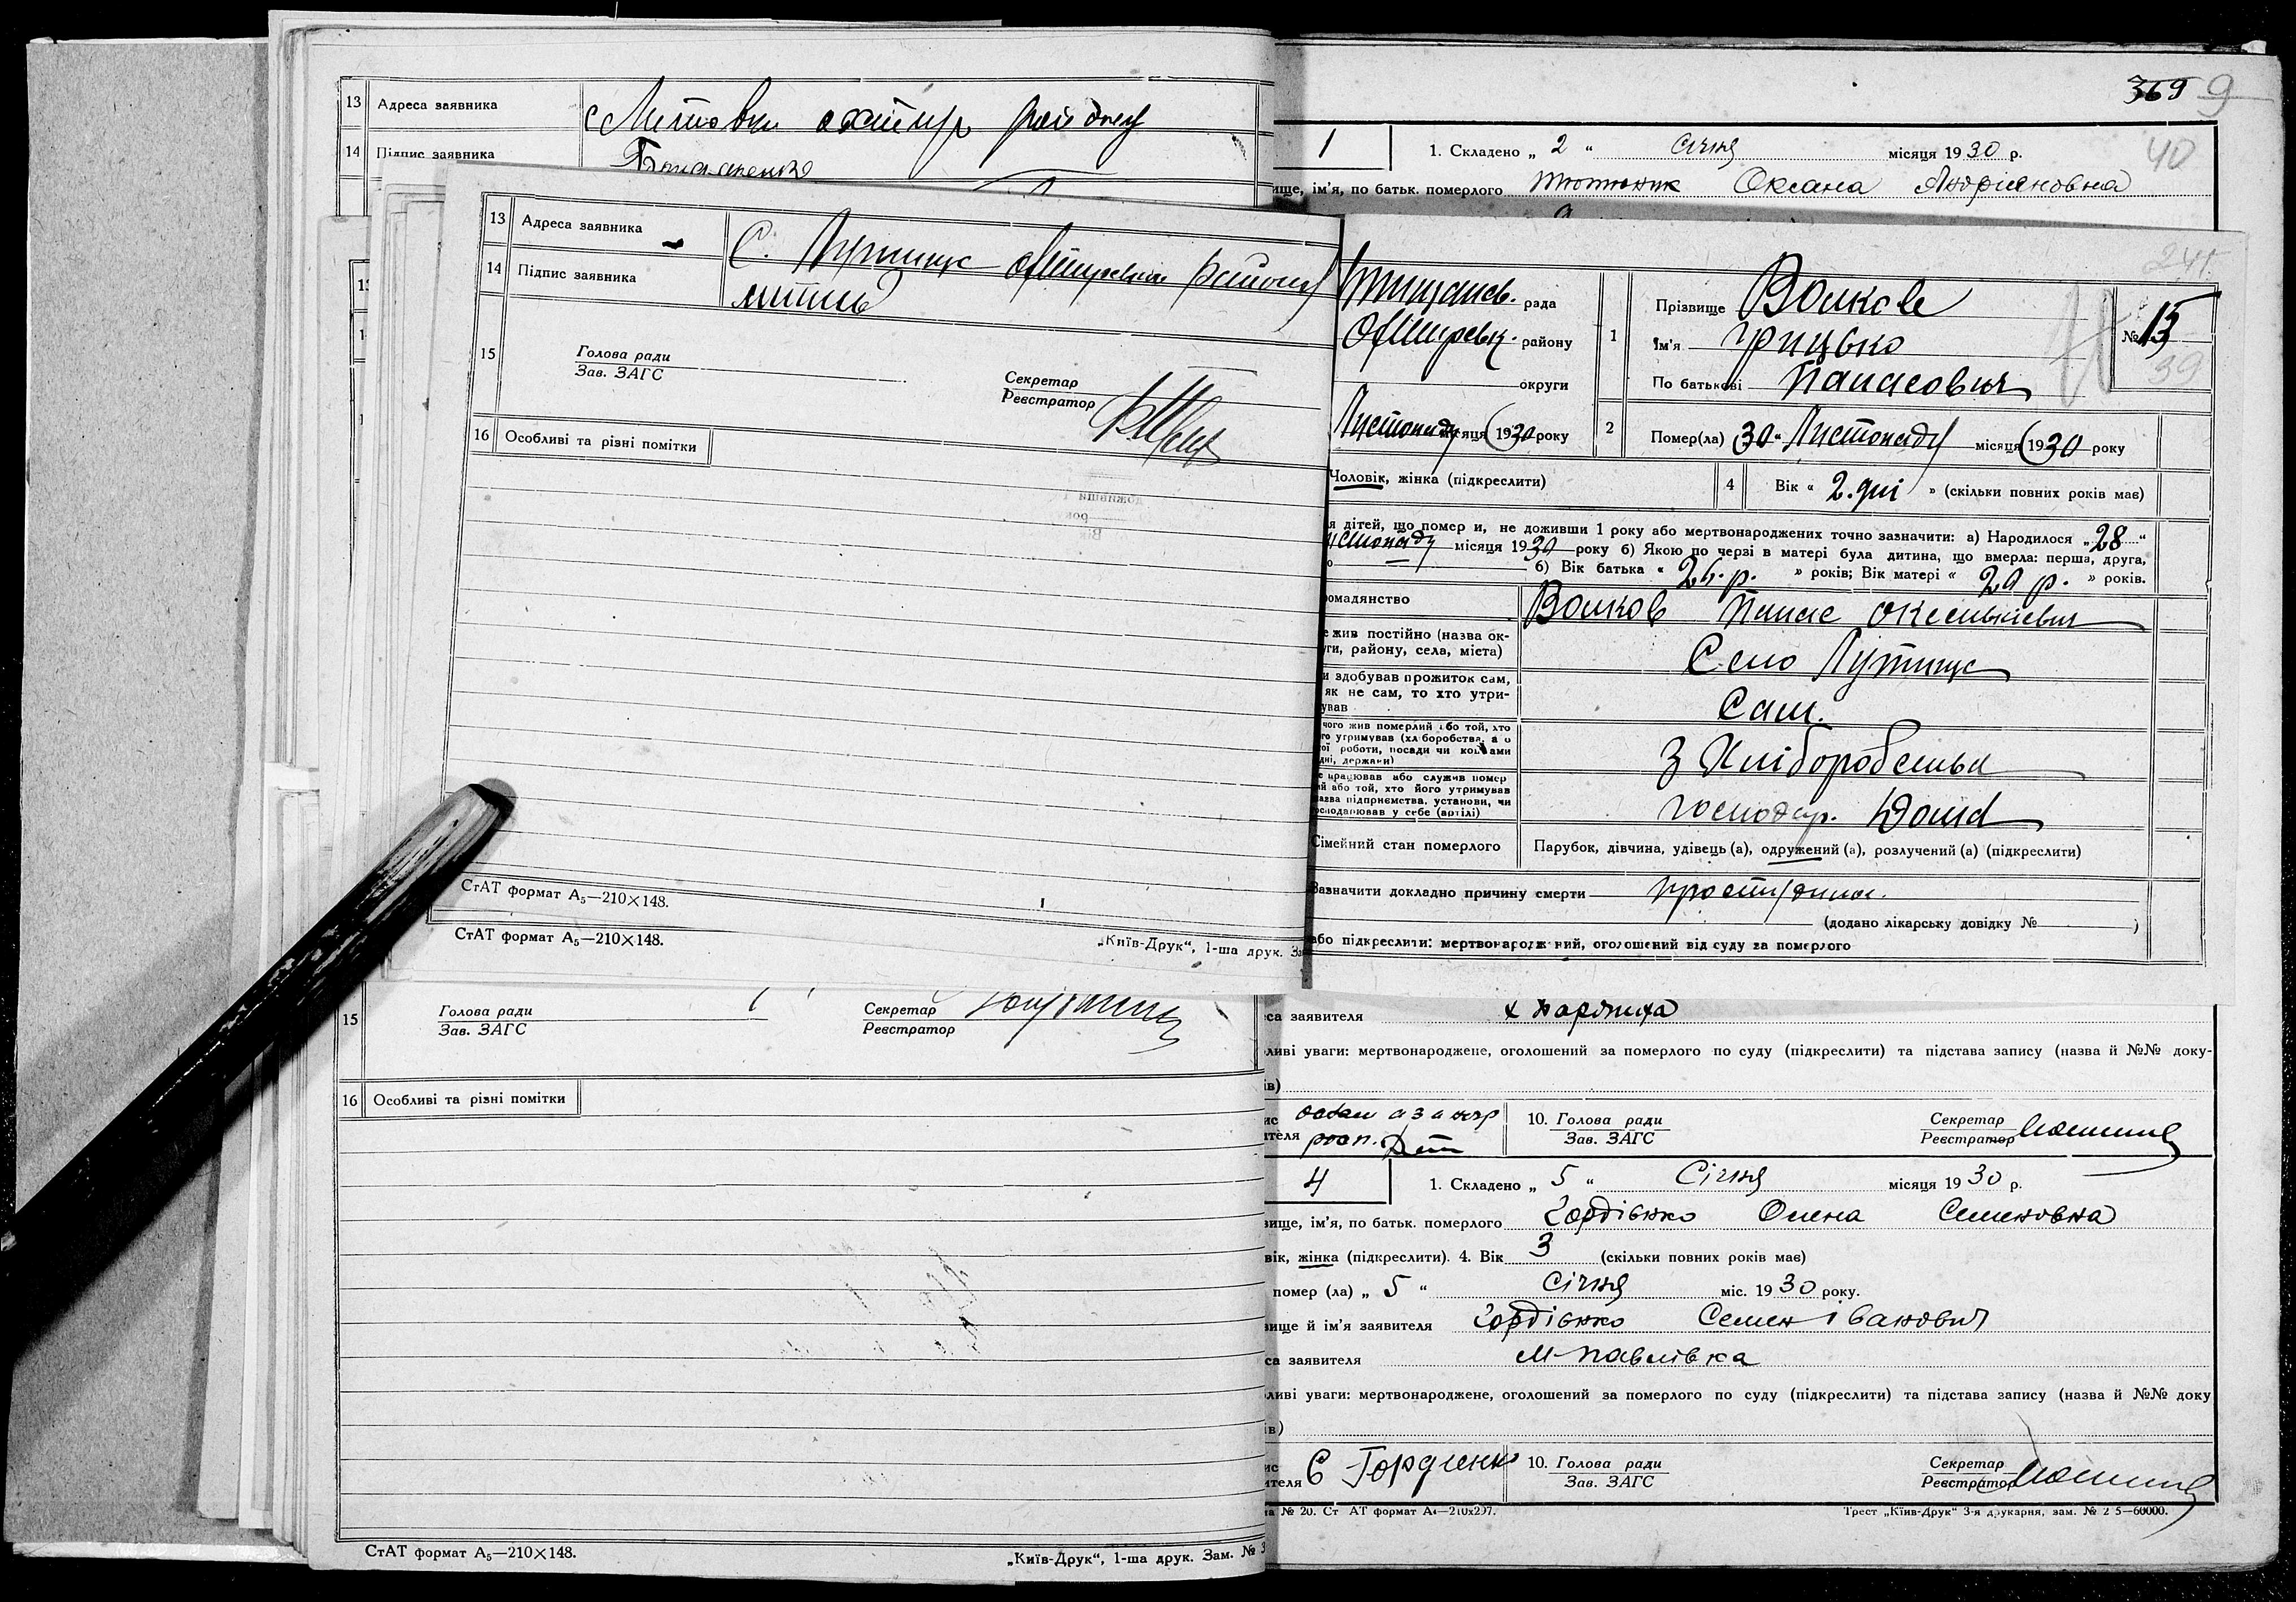 13 Адреса заявника
району
14 Підпис заявника
13 Адреса заявника С.
14 Підпис заявника
15 Голова ради
Зав. ЗАГС
Секретар
Реєстратор
16 Особливі та різні помітки
СтАТ формат А₅—210×148.
СтАТ формат А₅—210×148.
„Київ-Друк“, 1-ша друк. За
15 Голова ради
Зав. ЗАГС
Секретар
Реєстратор
16 Особливі та різні помітки
СтАТ формат А₅—210×148.
„Київ-Друк“, 1-ша друк. Зам. №
369 9
40
1 1. Складено „ 2 “ січня місяця 1930 р.
ище, ім'я, по батьк. померлого Тютюник Оксана Андріяновна
241
рада
району
округи
Листопаду місяця 1930 року
1 Прізвище Волков
Ім'я Грицько
По батькові Панасович
№ 15
39
2 Помер(ла) „30“ Листопаду місяця 1930 року
Чоловік, жінка (підкреслити)
4 Вік « 2.дні » (скільки повних років має)
я дітей, що помер и, не доживши 1 року або мертвонароджених точно зазначити: а) Народилося „28“
истопаду місяця 1930 року б) Якою по черзі в матері була дитина, що вмерла: перша, друга,
б) Вік батька « р. » років; Вік матері « р. » років.
омадянство Волков Панас
е жив постійно (назва ок-
уги, району, села, міста) Село
и здобував прожиток сам,
як не сам, то хто утри-
ував Сам.
чого жив померлий або той, хто
го утримував (хліборобства, а о
ої роботи, посади чи коштами
дні, держави) З Хліборобства
е працював або служив помер
ий або той, хто його утримував
назва підприємства, установи, чи
осподарював у себе (артілі) господар. вдома
Сімейний стан померлого Парубок, дівчина, удівець (а), одружений (а), розлучений (а) (підкреслити)
Зазначити докладно причину смерти простудила.
(додано лікарську довідку № )
або підкреслити: мертвонароджений, оголошений від суду за померлого
са заявителя
ливі уваги: мертвонароджене, оголошений за померлого по суду (підкреслити) та підстава запису (назва й №№ доку-
ів)
ис
ителя
10. Голова ради
Зав. ЗАГС
Секретар
Реєстратор
4 1. Складено „ 5 “ Січня місяця 1930 р.
вище, ім'я, по батьк. померлого Гордієнко Олена Семеновна
вік, жінка (підкреслити). 4. Вік 3 (скільки повних років має)
помер (ла) „ 5 “ Січня міс. 1930 року.
вище й ім'я заявителя Гордієнко Семен Іванович
са заявителя М-Павлівка
ливі уваги: мертвонароджене, оголошений за померлого по суду (підкреслити) та підстава запису (назва й №№ доку
ів)
ис
ителя С Гордиенко
10. Голова ради
Зав. ЗАГС
Секретар
Реєстратор
а № 20. Ст АТ формат А₄—210x297.
Трест „Київ-Друк“ 3-я друкарня, зам. № 2 5—60000.